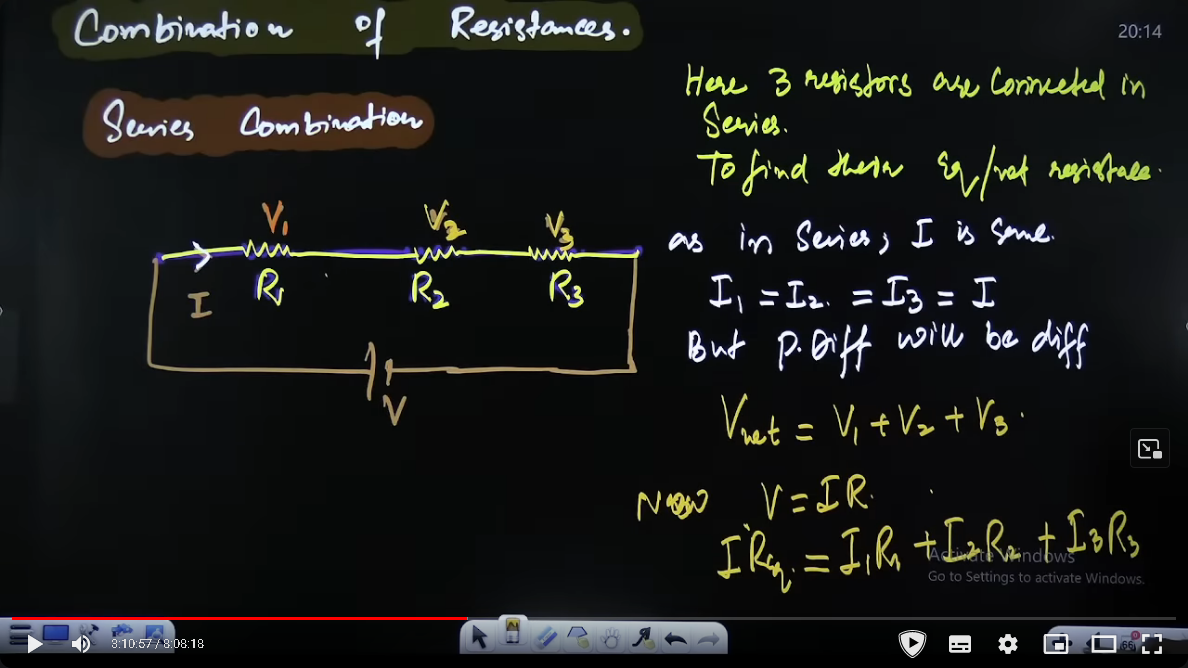 Combination of Resistances.
20:14
Series Combination
Here 3 resistors are connected in
Series.
To find their Eq/net resistance.
V₁ V₂ V₃
I R₁ R₂ R₃
V
as in Series, I is same.
I₁ = I₂ = I₃ = I
But P. Diff will be diff
Vnet = V₁ + V₂ + V₃.
Now V = IR.
I Req. = I₁R₁ + I₂R₂ + I₃R₃
Activate Windows
Go to Settings to activate Windows.
3:10:57 / 8:08:18